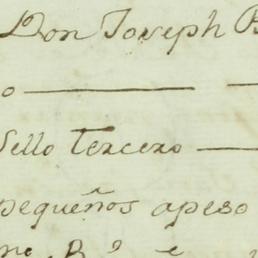 Don Joseph B
o
Sello Tercero
pequeños apeso